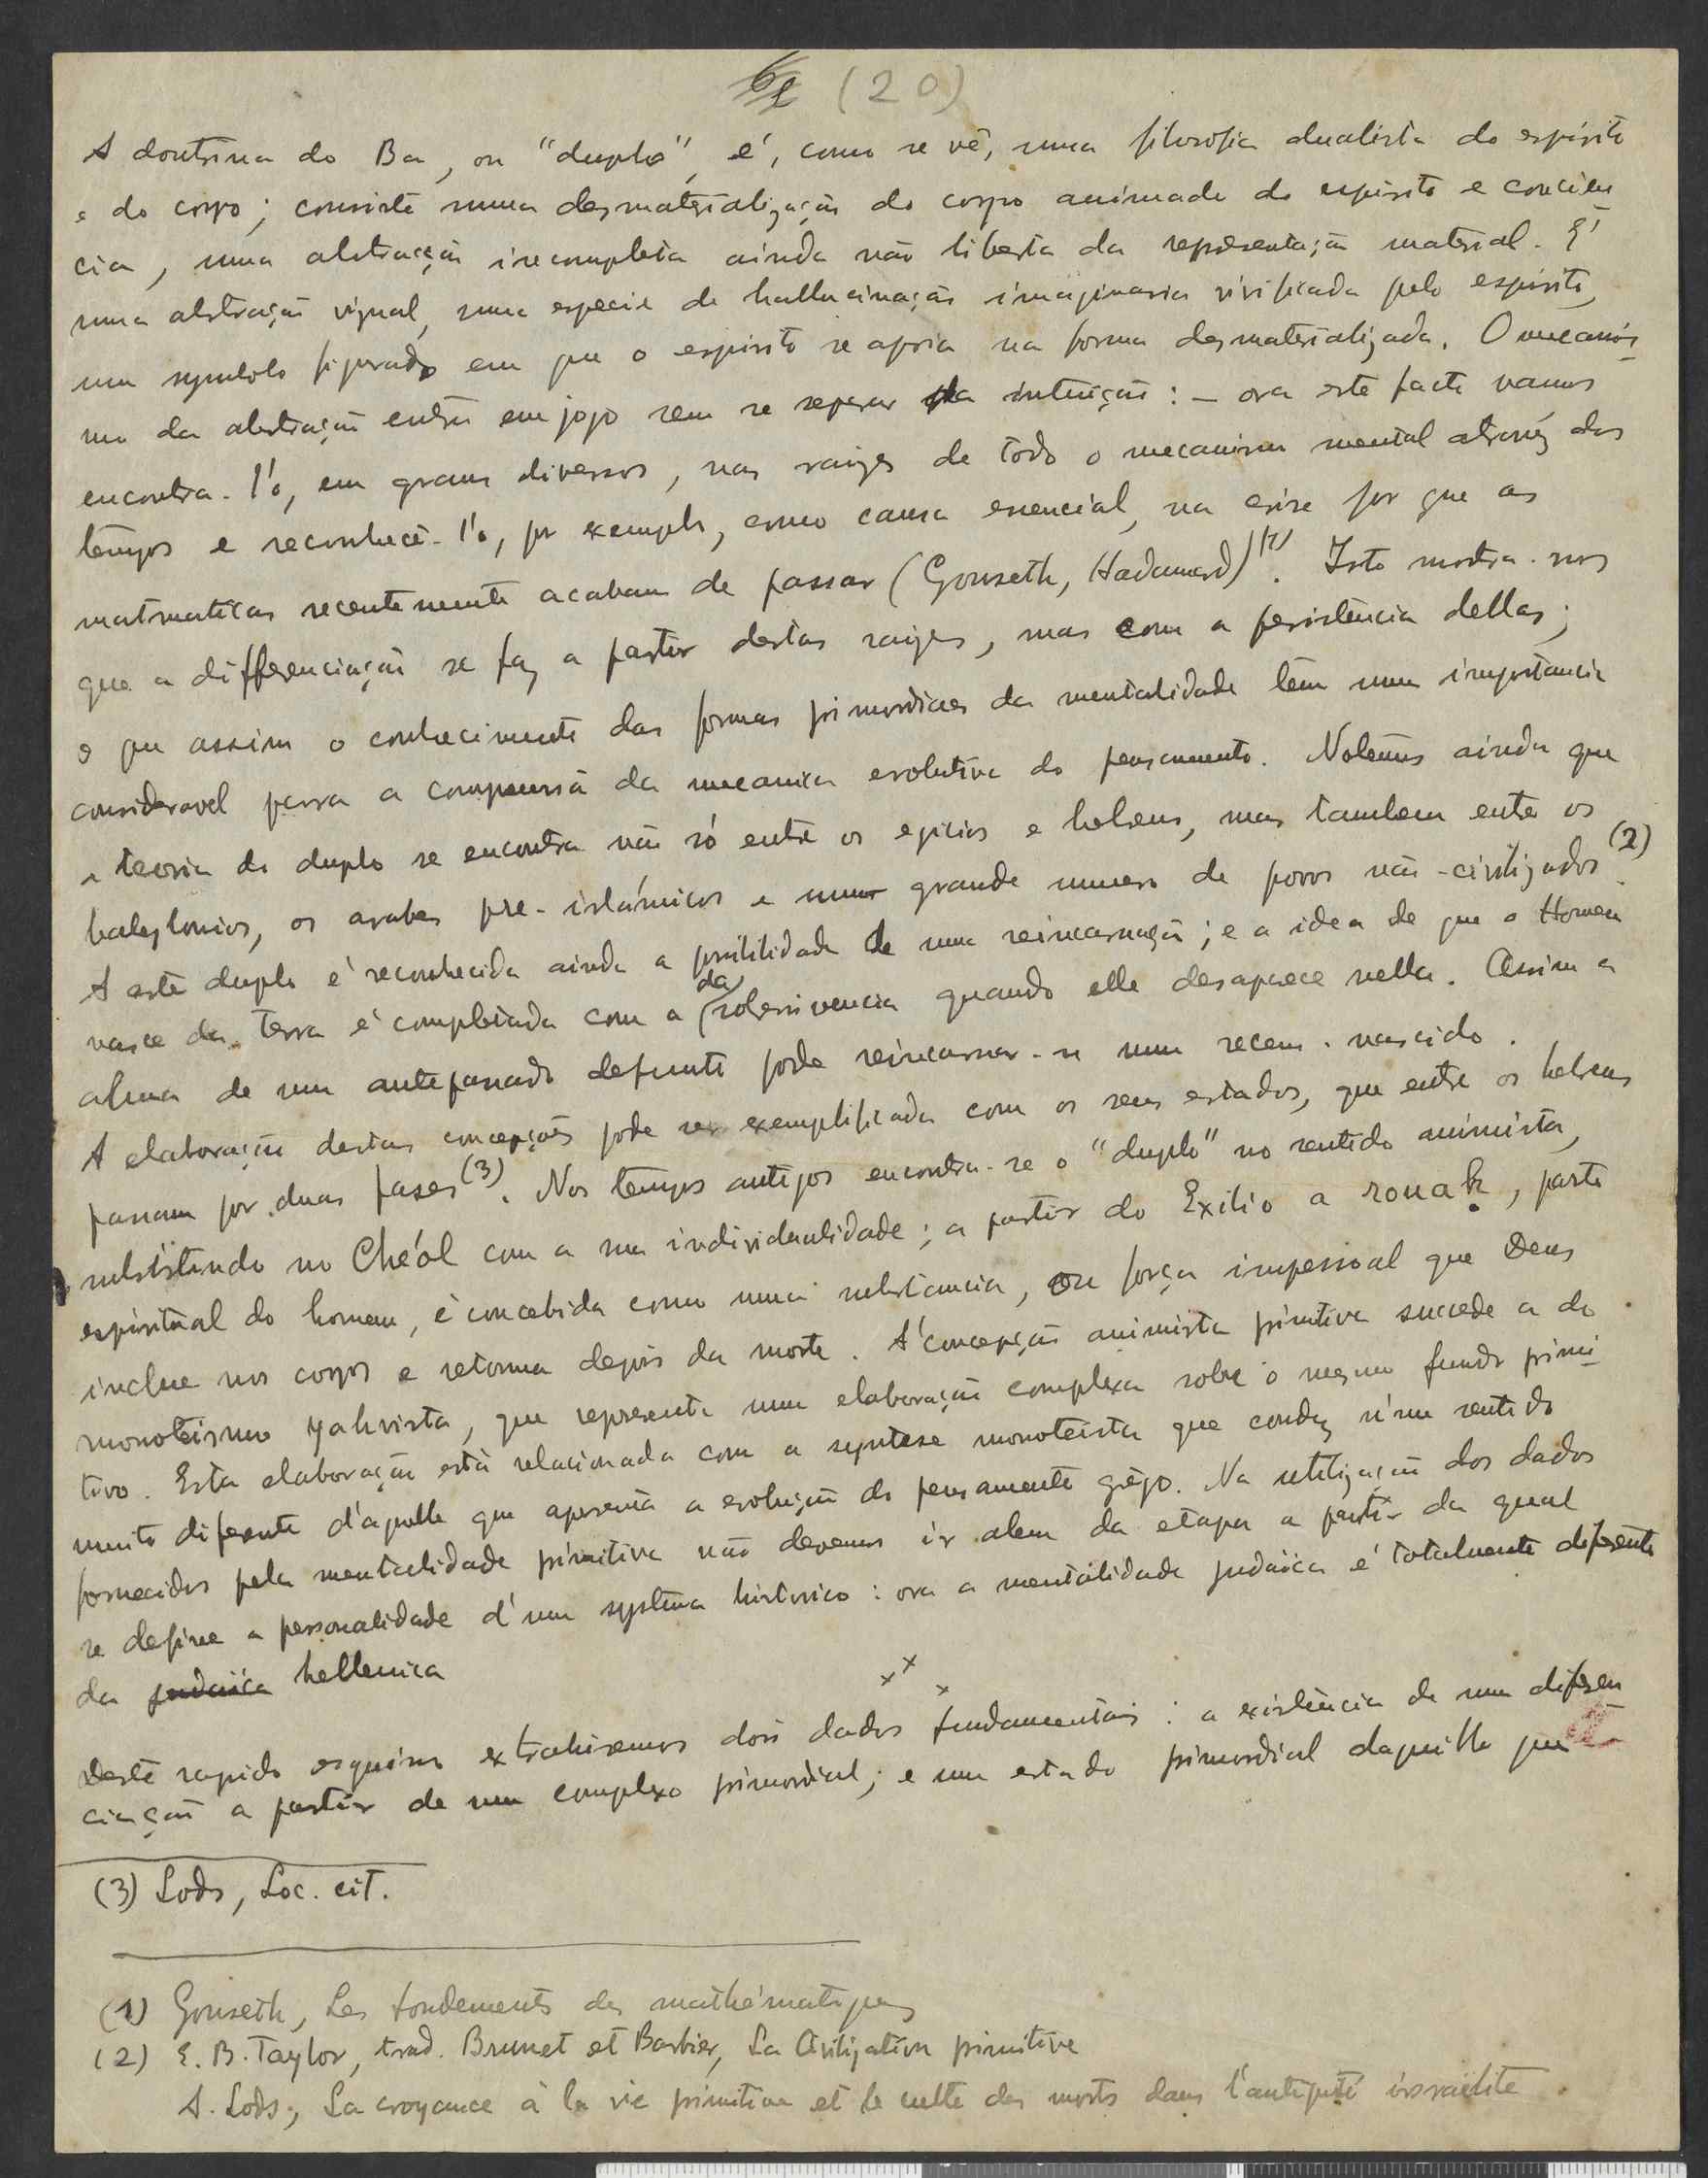 (20)
A doutrina do Ba, ou "duplo", é, como se vê, uma filosofia dualista do espirito
e do corpo; consiste numa desmaterialização do corpo animado do espirito e conciên_
cia, uma abstracção incompleta ainda não liberta da representação material. É
uma abstração visual, uma especie de hallucinação imaginaria vivificada pelo espirito,
um symbolo figurado em que o espirito se apoia na forma desmaterializada. O mecanis_
mo da abstração entra em jogo sem se separar da intuição: – ora este facto vamos
encontra-l'o, em graus diversos, nas raizes de todo o mecanismo mental atravez dos
tempos e reconhecê-l'o, por exemplo, como causa essencial, na crise por que as
matmaticas recentemente acabam de passar (Gonseth, Hadamard)(1). Isto mostra-nos
que a differenciação se faz a partir destas raizes, mas com a persistência dellas;
e que assim o conhecimento das formas primordiaes da mentalidade têm uma importancia
consideravel para a compreensã da mecanica evolutiva do pensamento. Notêmos ainda que
a teoria do duplo se encontra não só entre os egicios e hebreus, mas tambem entre os
babylonios, os arabes pre-islámicos e num grande numero de povos não-civilizados (2).
A este duplo é reconhecida ainda a possibilidade de uma reincarnação; e a idea de que o Homem
nasce da Terra é completada com a da sobrevivencia quando elle desaparece nella. Assim a
alma de um antepassado defunto pode reincarnar-se num recem-nascido.
A elaboração destas concepções pode ser exemplificada com os seus estados, que entre os hebreus
passam por duas fases (3). Nos tempos antigos encontra-se o "duplo" no sentido animista,
subsistindo no Chéol com a sua individualidade; a partir do Exilio a rouaḥ, parte
espiritual do homem, é concebida como uma substancia, ou força impessoal que Deus
inclue nos corpos e retoma depois da morte. A' concepção animista primitiva sucede a do
monoteismo yahvista, que representa uma elaboração complexa sobre o mesmo fundo primi_
tivo. Esta elaboração está relacionada com a syntese monoteista que conduz n'um sentido
muito diferente d'aquelle que apresenta a evolução do pensamento grêgo. Na utilização dos dados
fornecidos pela mentalidade primitiva não devemos ir alem da etapa a partir da qual
se define a personalidade d'um systema historico: ora a mentalidade judaica é totalmente diferente
da judaica hellenica
x x x
Deste rapido esquisso extrahiremos dois dados fundamentais: a existência de uma diferen
ciação a partir de um complexo primordial; e um estado primordial daquillo que
(3) Lods, Loc. cit.
(1) Gonseth, Les fondements des mathématiques
(2) E. B. Taylor, trad. Brunet et Barbier, La Civilization primitive
A. Lods, La croyance à la vie primitive et le culte des morts dans l'antiquité israelite